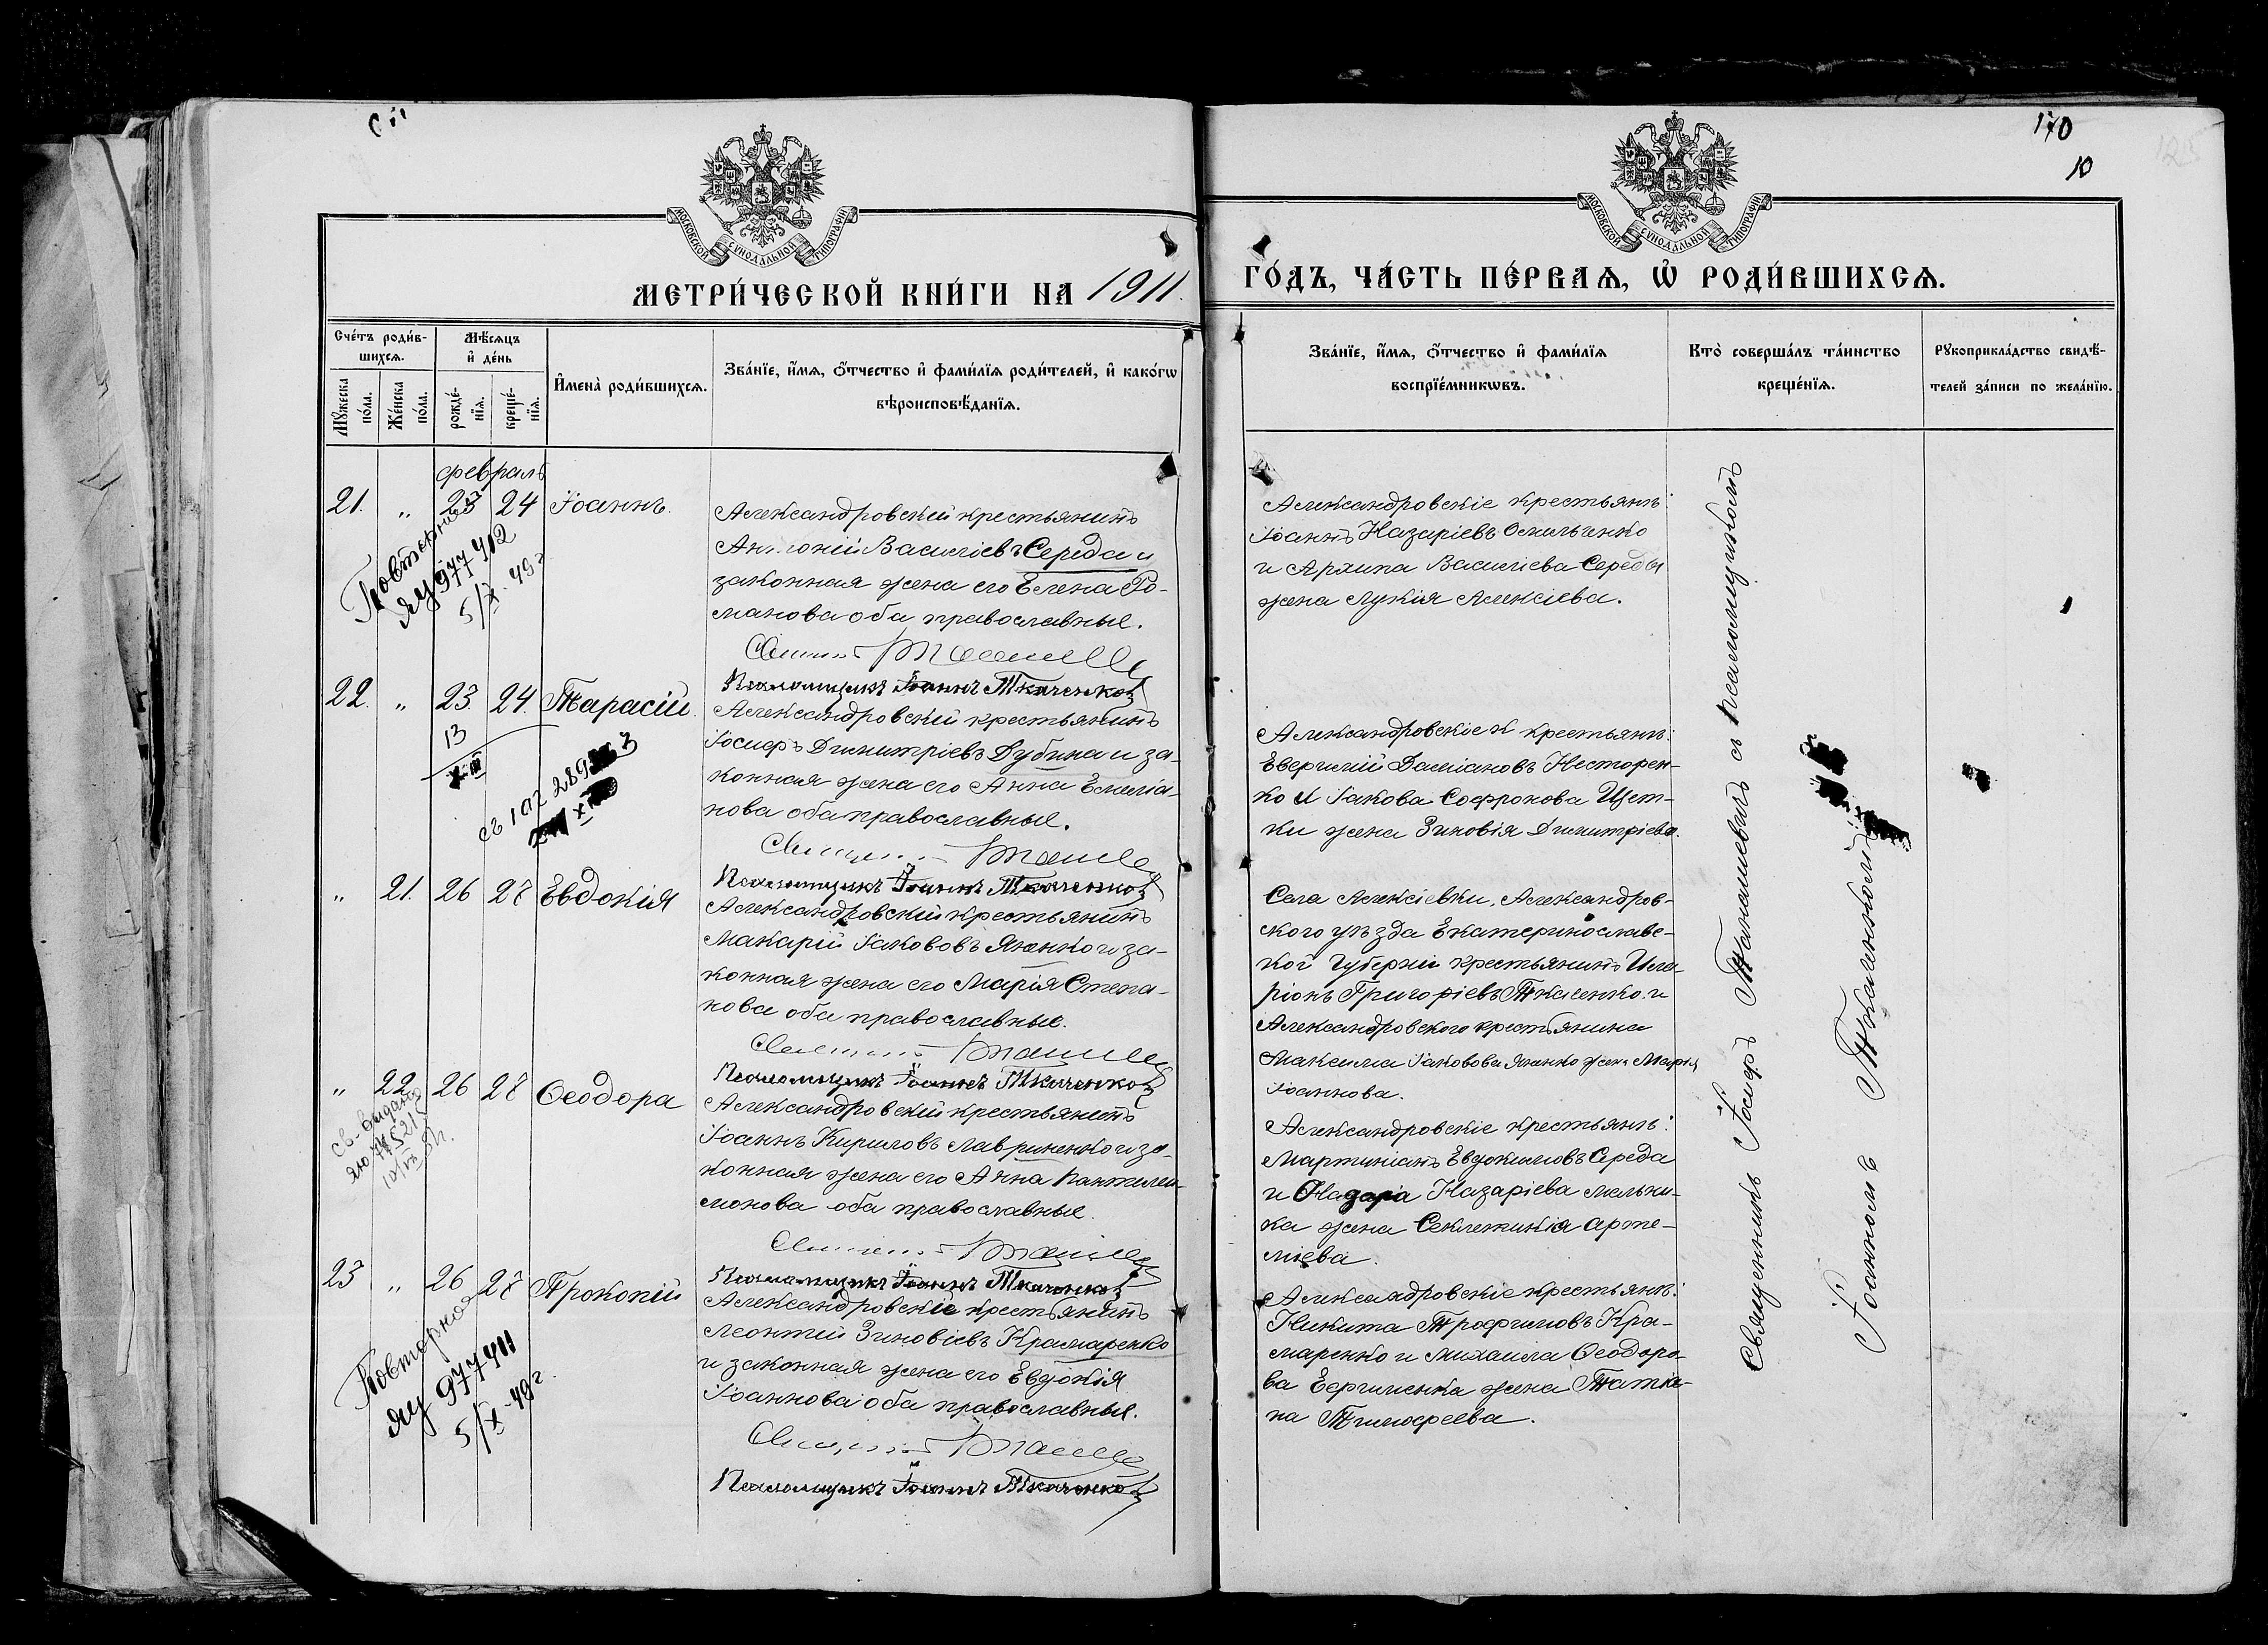 170
10
125
МОСКОВСКОЙ СѴНОДАЛЬНОЙ ТИПОГРАФІИ
МОСКОВСКОЙ СѴНОДАЛЬНОЙ ТИПОГРАФІИ
МЕТРИ́ЧЕСКОЙ КНИ́ГИ НА 1911
ГО́ДЪ, ЧА́СТЬ ПЕ́РВАѦ, Ѡ҆ РОДИ́ВШИХСѦ.
Сче́тъ роди́в-
шихсѧ.
Мꙋ́жеска
по́ла.
Же́нска
по́ла.
Мѣ́сѧцъ
и҆ де́нь
рожде́-
нїѧ.
креще́-
нїѧ.
И҆мена̀ роди́вшихсѧ.
Зва́нїе, и҆́мѧ, ѻ҆́тчество и҆ фами́лїѧ роди́телей, и҆ како́гѡ
вѣроисповѣ́данїѧ.
Зва́нїе, и҆́мѧ, ѻ҆́тчество и҆ фами́лїѧ
воспрїе́мникѡвъ.
Кто̀ соверша́лъ та́инство
креще́нїѧ.
Рꙋкоприкла́дство свидѣ́-
телей за́писи по жела́нїю.
февраль
21. „ 23 24 Іоаннъ.
Александровскій крестьянинъ
Антоній Василіевъ Середа и
законная жена его Елена Ро-
манова оба православные.
Псаломщикъ Іоаннъ Ткаченко
Александровскіе крестьяне:
Іоаннъ Назаріевъ Омельченко
и Архипа Василіева Середы
жена Лукія Алексіева.
Повторная
ЯЦ 977412
5/X 49 г
22. „ 23. 24. Тарасій.
Александровскій крестьянинъ
Іосифъ Димитріевъ Дубина и за-
конная жена его Анна Емилiа-
нова оба православные.
Псаломщикъ Іоаннъ Ткаченко
Александровскіе крестьяне:
Евергилій Даміановъ Несторен-
ко и Іакова Софронова Щет-
ки жена Зиновія Димитріева.
13
„ 21. 26 27 Евдокія
Александровскій крестьянинъ
Макарій Іакововъ Яненко и за-
конная жена его Марія Степа-
нова оба православные.
Псаломщикъ Іоаннъ Ткаченко
Села Алексіевки, Александров-
ского уѣзда Екатеринославс-
кой губерніи крестьянинъ Ила-
ріонъ Григоріевъ Ткаченко и
Александровского крестьянина
Максима Іаковова Яненко жена Марія
Іоаннова.
„ 22 26 27 Ѳеодора
Александровскій крестьянинъ
Іоаннъ Кириловъ Лавриненко и за-
конная жена его Анна Пантелеи-
монова оба православные.
Псаломщикъ Іоаннъ Ткаченко
Александровскіе крестьяне:
Мартиніанъ Евдокимовъ Середа
и Назарія Назаріева Мельни-
ка жена Секлетикія Арте-
міева.
23 „ 26 27 Прокопій
Александровскіе крестьянинъ
Леонтій Зиновіевъ Крамаренко
и законная жена его Евдокія
Іоаннова оба православные.
Псаломщикъ Іоаннъ Ткаченко
Александровскіе крестьяне:
Никита Трофимовъ Кра-
маренко и Михаила Ѳеодоро-
ва жена Татіа-
на Тимофеева.
Повторная
ЯЦ 977411
5/X 49 г.
Священникъ Іосифъ Танашевичъ съ псаломщикомъ
Іоанномъ Ткаченкомъ